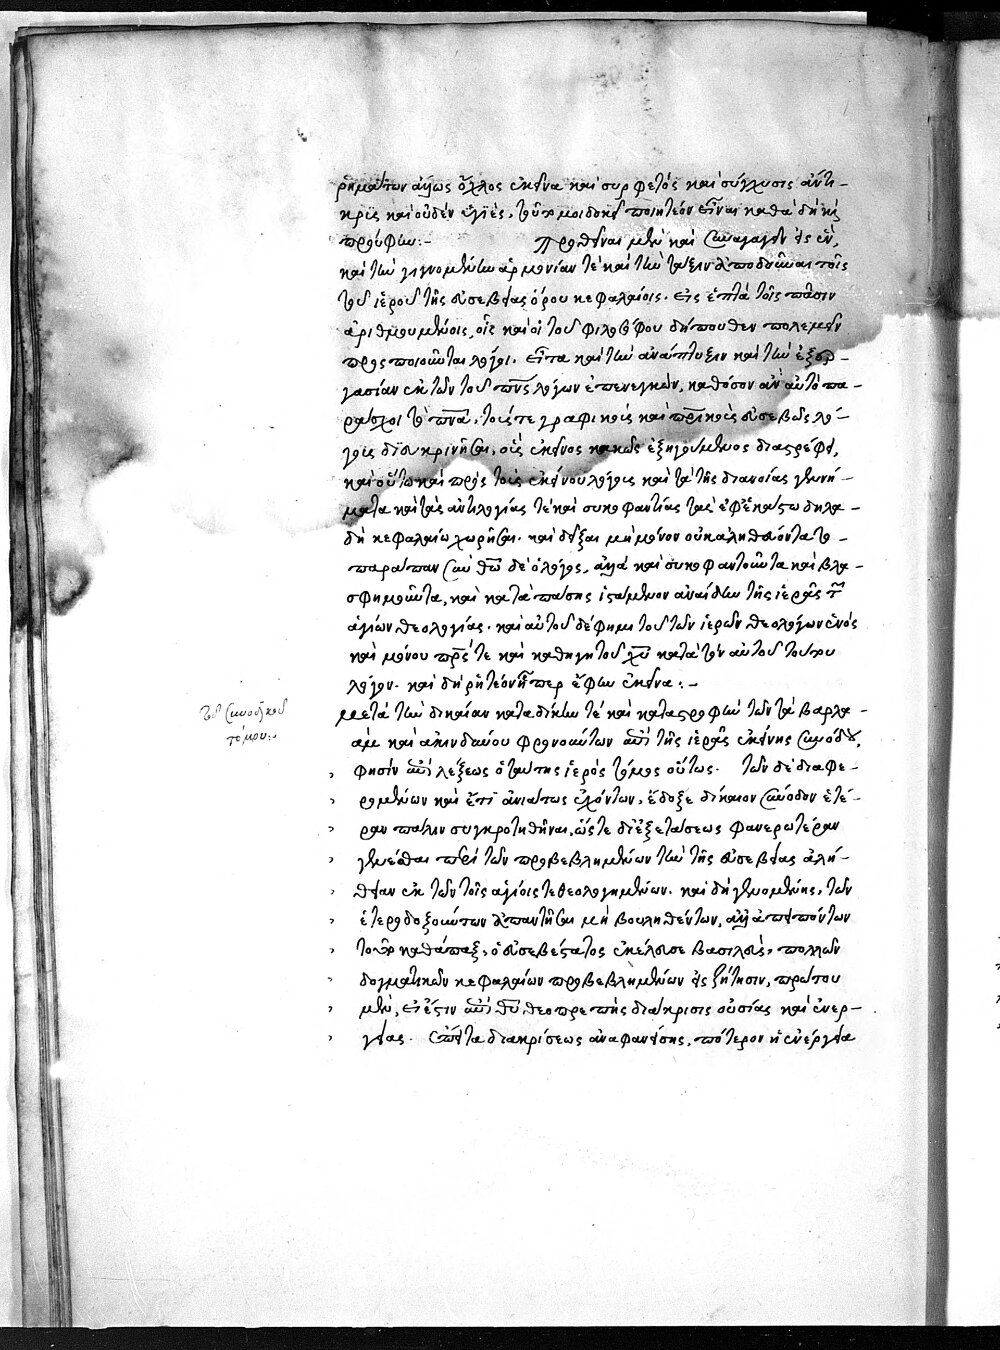 ῥημάτων ἄλλως ὄχλος ἐκεῖνα καὶ συρφετὸς καὶ σύγχυσις ἄντι-
κρυς καὶ οὐδὲν ὑγιές. τοῦτό μοι δοκεῖ ποιητέον εἶναι καθὰ δὴ κἂς
προὔφην:- Προθεῖναι μὲν καὶ συναγαγεῖν εἰς ἓν,
καὶ τὴν γιγνομένην ἁρμονίαν τὲ καὶ τὴν τάξιν ἀποδοῦναι τοῖς
τοῦ ἱεροῦ τῆς εὐσεβείας ὅρου κεφαλαίοις. εἰς ἑπτὰ τοῖς πᾶσιν
ἀριθμουμένοις, οἷς καὶ οἱ τοῦ φιλοθέου δήπουθεν πολεμεῖν
προσποιοῦνται λόγοι. εἶτα καὶ τὴν ἀνάπτυξιν καὶ τὴν ἐξερ-
γασίαν ἐκ τῶν τοῦ πνς λόγων ἐπενεγκεῖν, καθόσον ἂν αὐτὸ πα-
ράσχοι τὸ πνα, τοῖς τε γραφικοῖς καὶ πρικοῖς εὐσεβῶς λό-
γοις διευκρινῆσαι, οἷς ἐκεῖνος κακῶς ἐξηγούμενος διαστρέφει,
καὶ οὕτω καὶ πρὸς τοὺς ἐκείνου λόγους καὶ τὰ τῆς διανοίας γεννή-
ματα καὶ τὰς ἀντιλογίας τὲ καὶ συκοφαντίας τὰς ἐφ' ἑκάστω δηλα-
δὴ κεφαλαίω χωρῆσαι. καὶ δεῖξαι μὴ μόνον οὐκ ἀληθεύοντα το-
παράπαν σὺν θῶ δὲ ὁ λόγος, ἀλλὰ καὶ συκοφαντοῦντα καὶ βλα-
σφημοῦντα, καὶ κατὰ πάσης ἱστάμενον ἀναίδην τῆς ἱερᾶς τῶν
ἁγίων θεολογίας. καὶ αὐτοῦ δέ φημι τοῦ τῶν ἱερῶν θεολόγων ἑνὸς
καὶ μόνου πρς τε καὶ καθηγητοῦ χυ κατὰ τὸν αὐτοῦ τούτου
λόγον. καὶ δὴ ῥητέον ᾗπερ ἔφην ἐκεῖνα:-
τοῦ συνοδικοῦ
τόμου:-
μετὰ τὴν δικαίαν καταδίκην τὲ καὶ καταστροφὴν τῶν τὰ βαρλα-
ὰμ καὶ ἀκινδύνου φρονούντων ἀπὸ τῆς ἱερᾶς ἐκείνης συνόδου,
φησὶν ἀπὸ λέξεως ὁ ταύτης ἱερὸς τόμος οὕτως. τῶν δὲ διαφε-
ρομένων καὶ ἔτι ἀνιάτως ἐχόντων, ἔδοξε δίκαιον σύνοδον ἑτέ-
ραν πάλιν συγκροτηθῆναι, ὥστε δι' ἐξετάσεως φανερωτέραν
γενέσθαι περὶ τῶν προβεβλημένων τὴν τῆς εὐσεβείας ἀλή-
θειαν ἐκ τῶν τοῖς ἁγίοις τεθεολογημένων. καὶ δὴ γενομένης, τῶν
ἑτεροδοξούντων ἀπαντῆσαι μὴ βουληθέντων, ἀλλ' ἀπειπόντων
τοῦτο καθάπαξ, ὁ εὐσεβέστατος ἐκέλευσε βασιλεὺς, πολλῶν
δογματικῶν κεφαλαίων προβεβλημένων εἰς ζήτησιν, πρῶτον
μὲν, εἰ ἔστιν ἐπὶ θυ θεοπρεπὴς διάκρισις οὐσίας καὶ ἐνερ-
γείας. ἔπειτα διακρίσεως ἀναφανείσης, πότερον ἡ ἐνέργεια